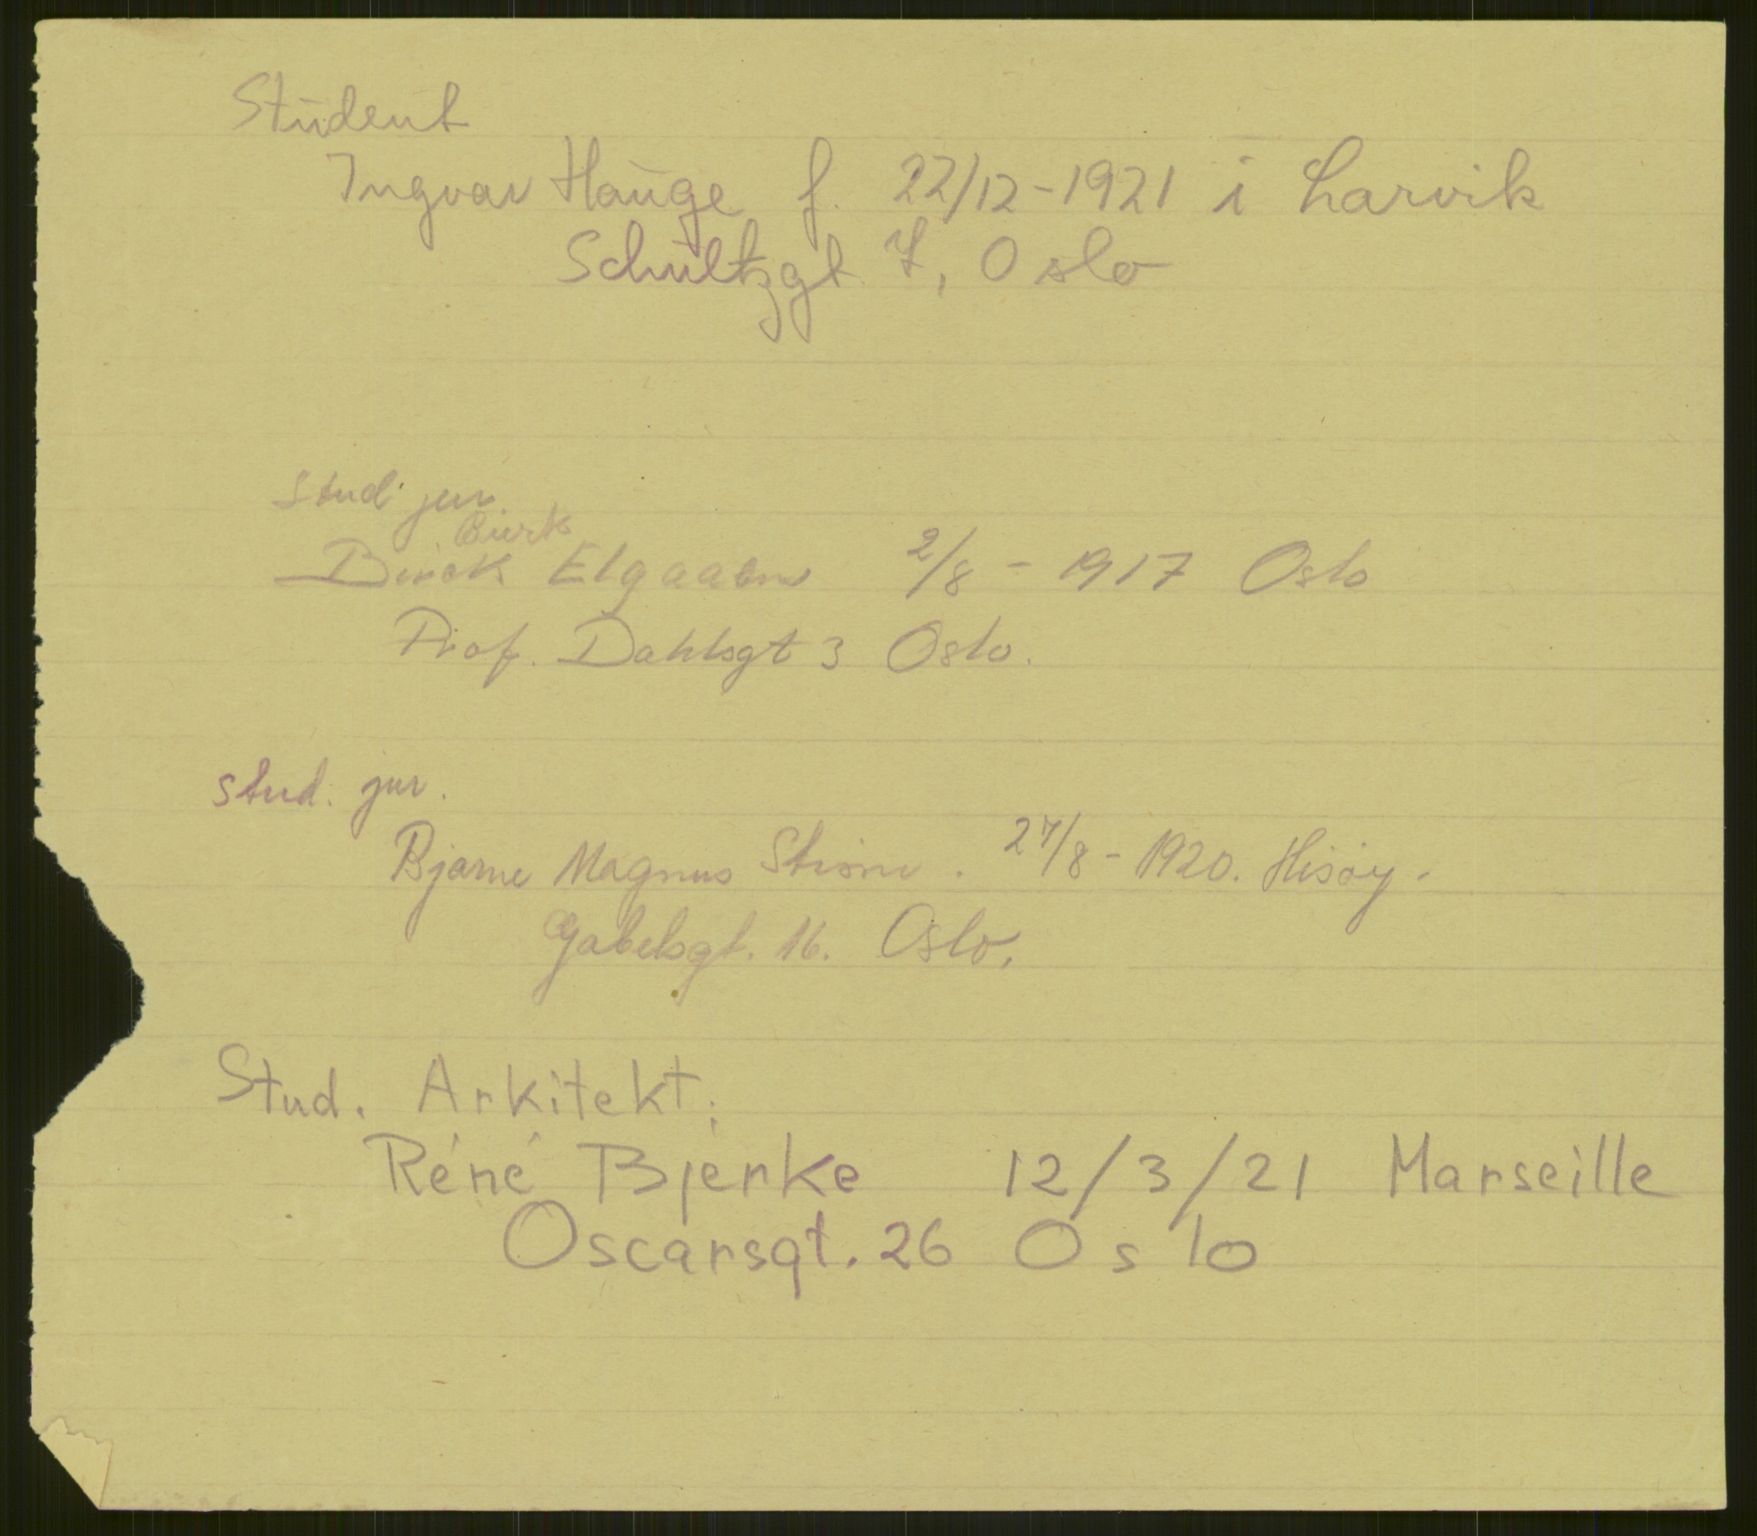 Student
Ingvar Hauge f. 22/12-1921 i Larvik
Schultzgt. 7, Oslo
Stud. jur
Birck
Birck Elgaaen 2/8 - 1917 Oslo
Prof. Dahlsgt 3 Oslo.
stud. jur.
Bjarne Magnus Strøm. 27/8-1920. Hisøy.
Gabelsgt. 16. Oslo.
Stud. Arkitekt:
Réné Bjerke 12/3/21 Marseille
Oscarsgt. 26 Oslo